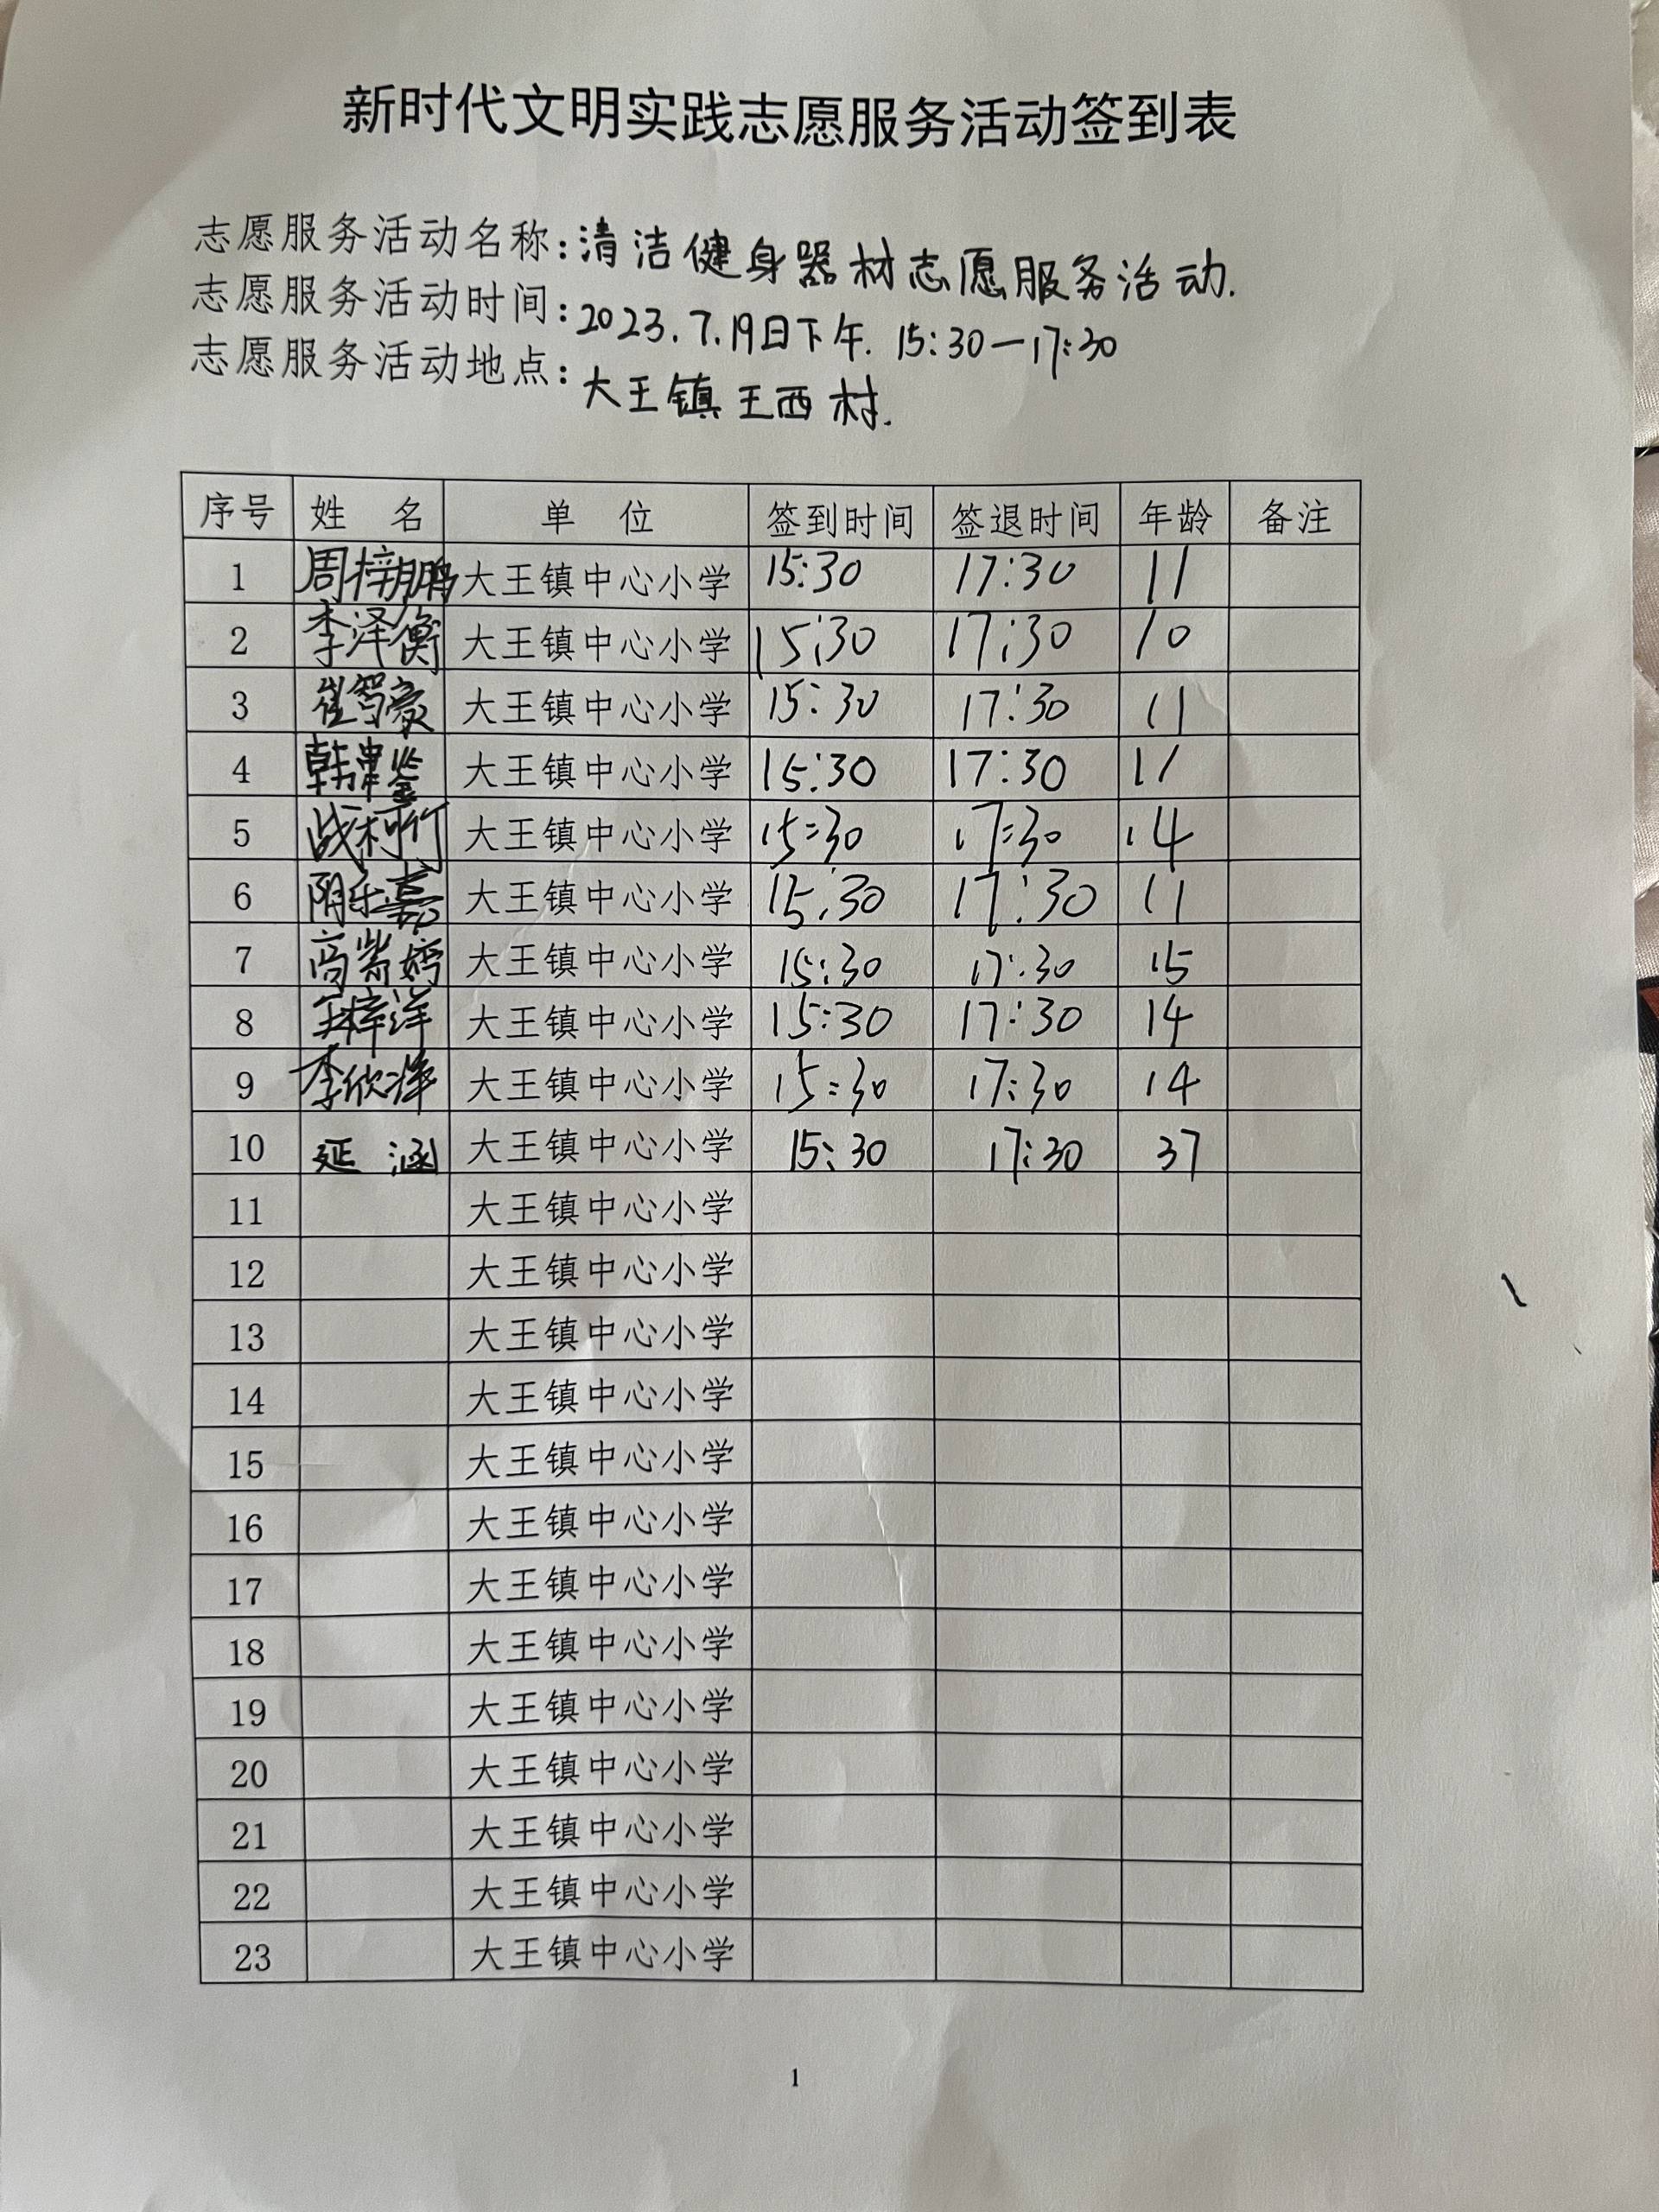 新时代文明实践志愿服务活动签到表
志愿服务活动名称:清洁健身器材志愿服务活动.
志愿服务活动时间:2023.7.19日下午. 15:30—17:30
志愿服务活动地点:大王镇王西村.
序号 姓 名 单 位 签到时间 签退时间 年龄 备注
1 周梓鹏 大王镇中心小学 15:30 17:30 11
2 李泽衡 大王镇中心小学 15:30 17:30 10
3 崔笃豪 大王镇中心小学 15:30 17:30 11
4 韩 大王镇中心小学 15:30 17:30 11
5 战柯竹 大王镇中心小学 15:30 17:30 14
6 阴乐嘉 大王镇中心小学 15:30 17:30 11
7 高紫嫣 大王镇中心小学 15:30 17:30 15
8 王梓洋 大王镇中心小学 15:30 17:30 14
9 李欣泽 大王镇中心小学 15:30 17:30 14
10 延 涵 大王镇中心小学 15:30 17:30 37
11 大王镇中心小学
12 大王镇中心小学
13 大王镇中心小学
14 大王镇中心小学
15 大王镇中心小学
16 大王镇中心小学
17 大王镇中心小学
18 大王镇中心小学
19 大王镇中心小学
20 大王镇中心小学
21 大王镇中心小学
22 大王镇中心小学
23 大王镇中心小学
1